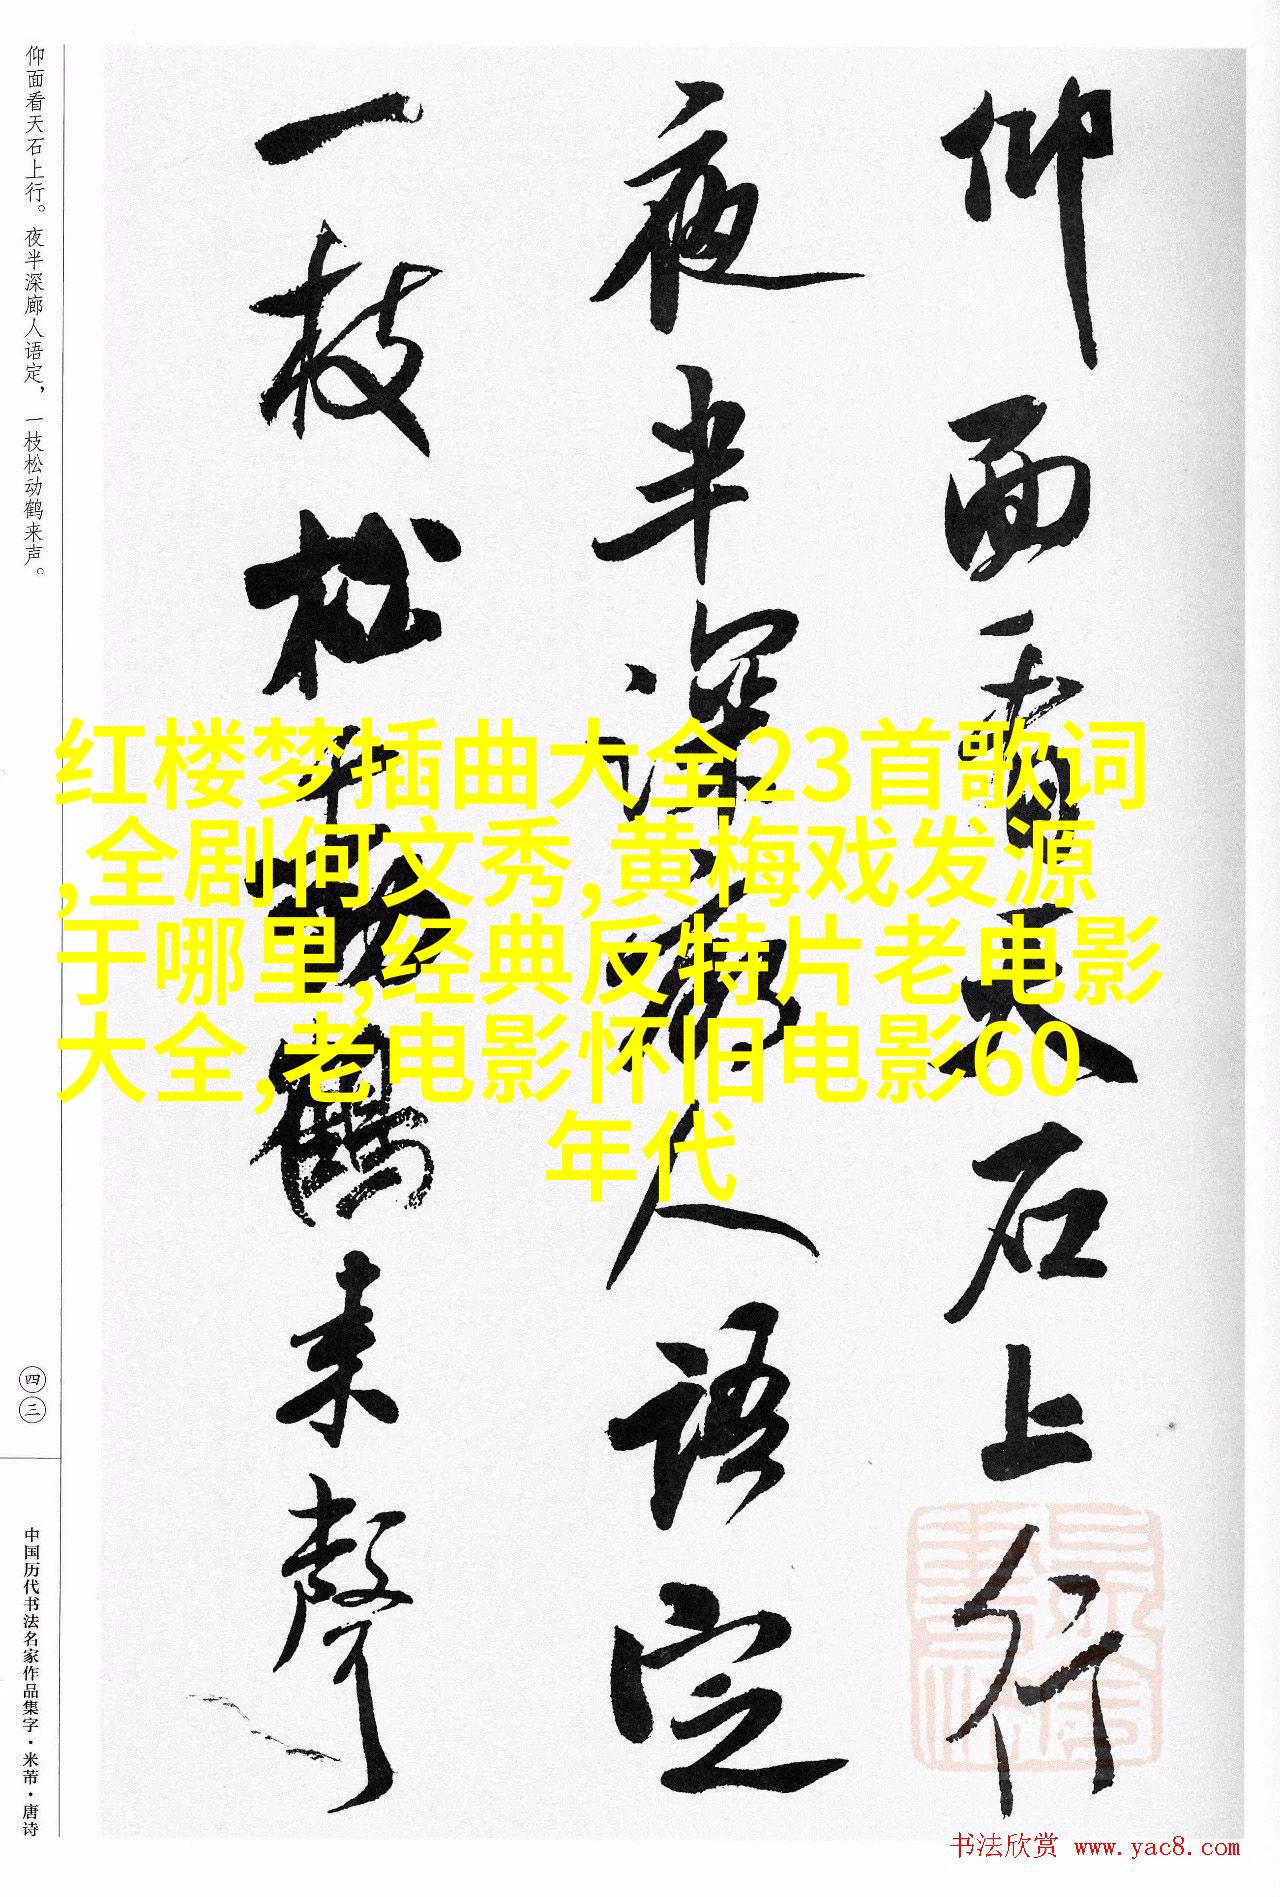 仰面看天石上行
夜半深廊人语定
一枝松动鹤来聲
仰面看天石上行。夜半深廊人语定，一枝松动鹤来声。
四三
中国历代书法名家作品集字·米芾·唐诗
红楼梦插曲大全23首歌词
,全剧何文秀,黄梅戏发源
于哪里,经典反特片老电影
大全,老电影怀旧电影60
年代
书法欣赏 www.yac8.com